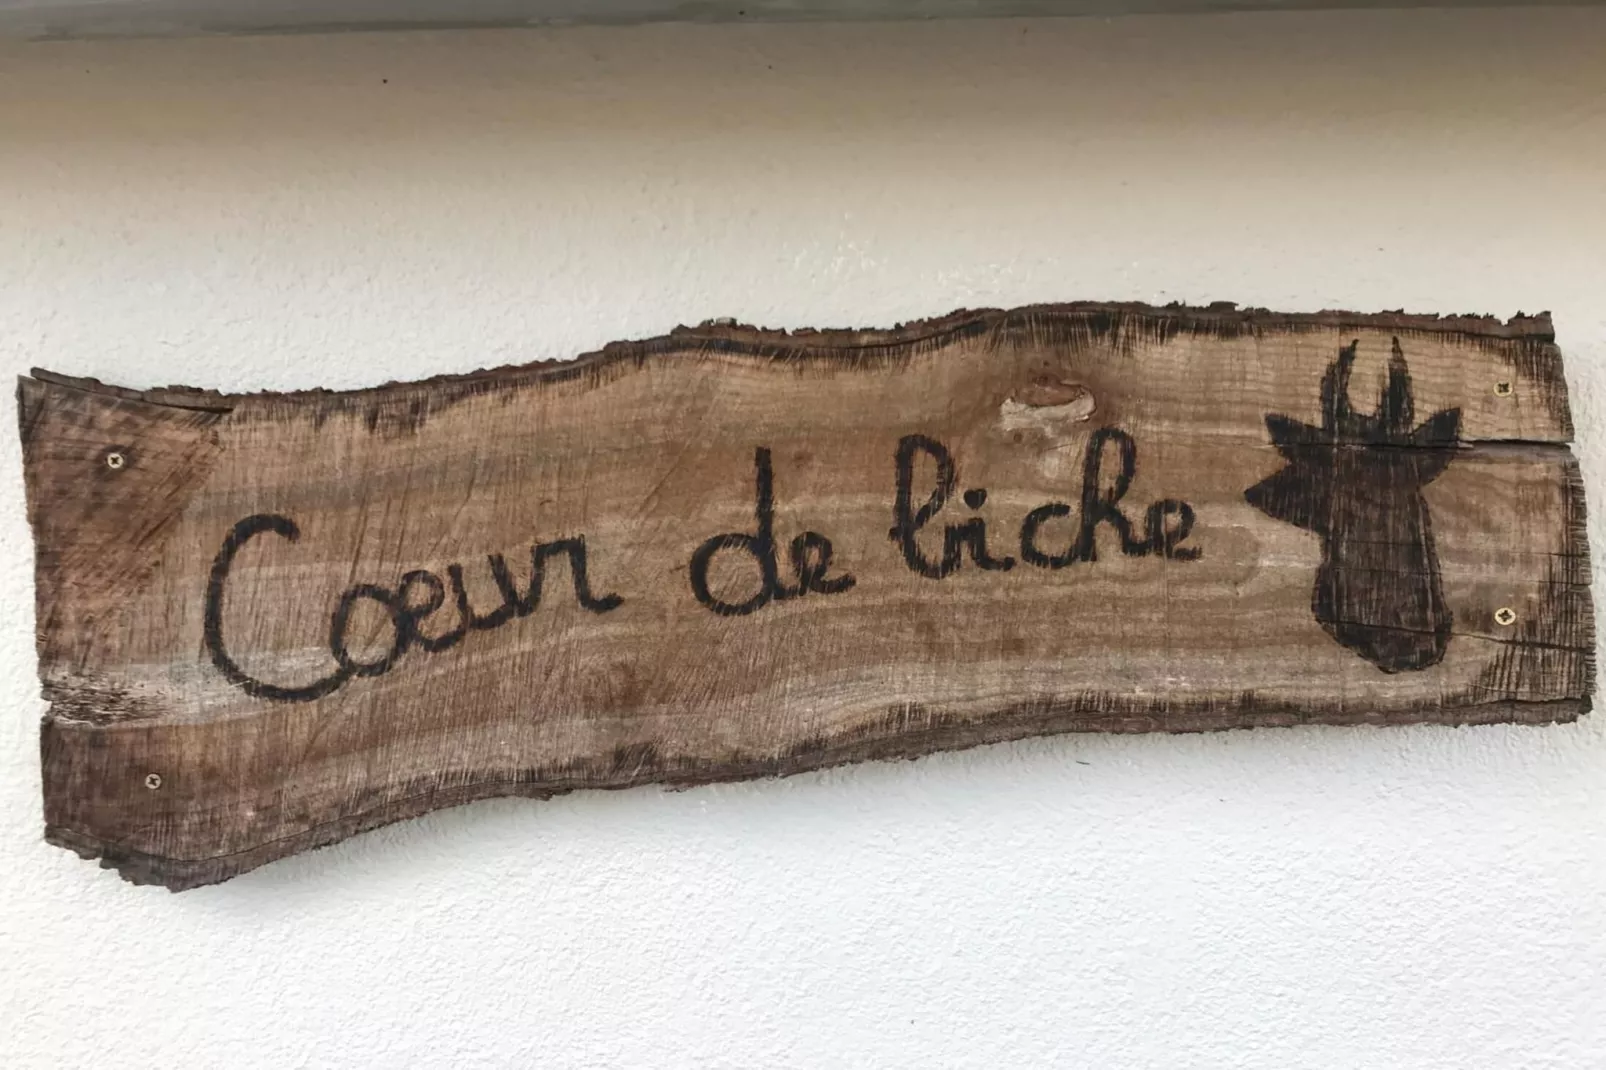 Cœur de biche